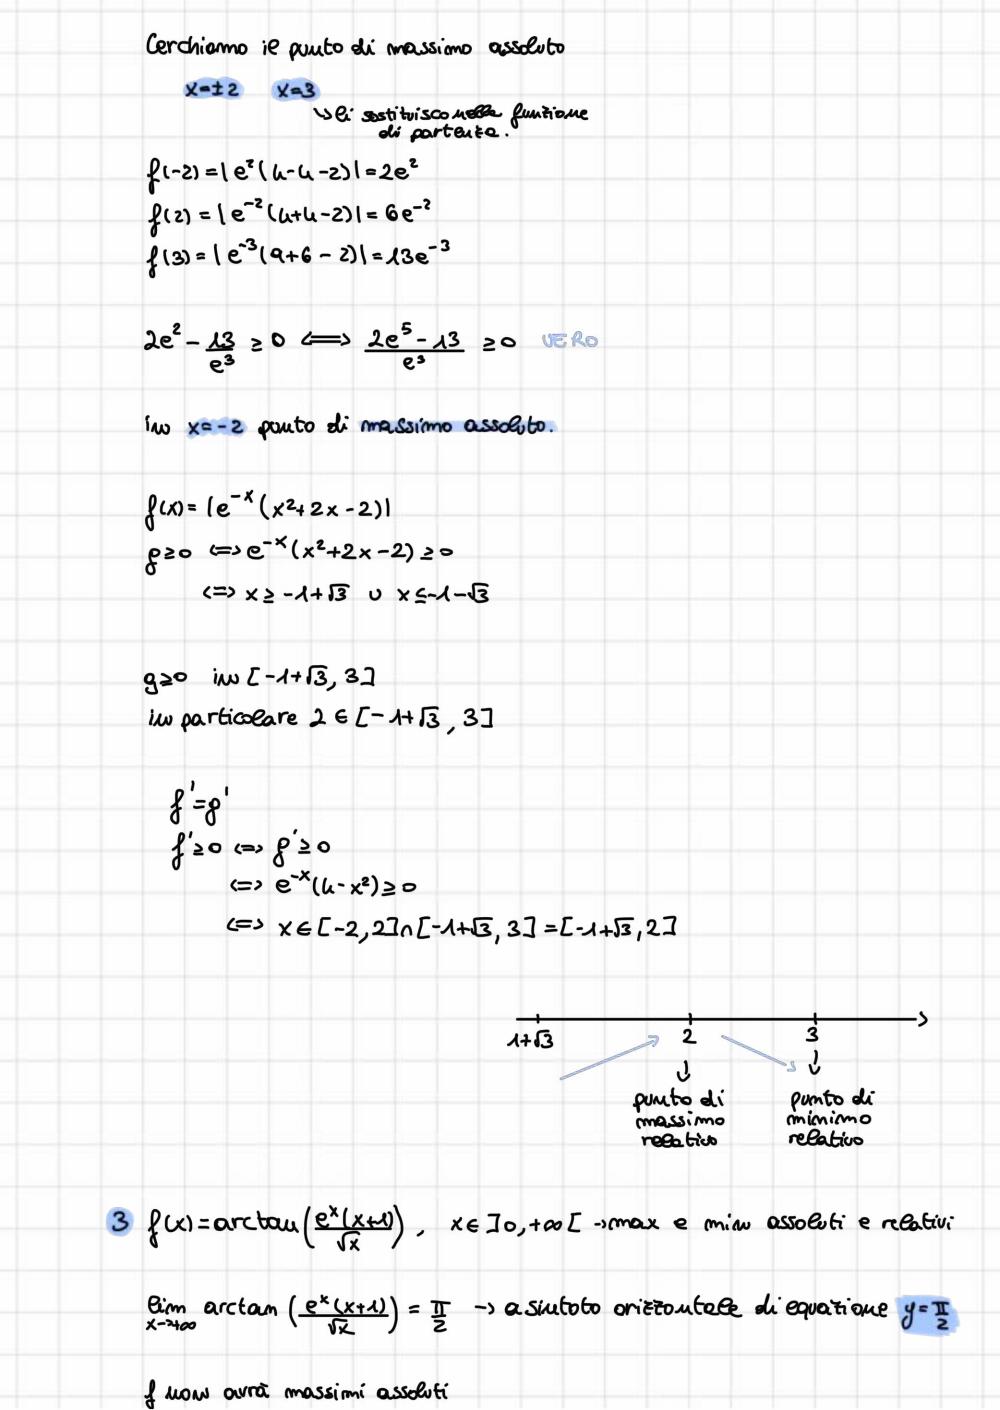 Cerchiamo il punto di massimo assoluto
x=±2 x=3
↘ li sostituisco nella funzione
di partenza.
f(-2)=|e²(4-4-2)|=2e²
f(2)=|e⁻²(4+4-2)|=6e⁻²
f(3)=|e⁻³(9+6-2)|=13e⁻³
2e² - 13/e³ ≥ 0 <=> (2e⁵-13)/e³ ≥ 0 VERO
in x=-2 punto di massimo assoluto.
f(x)=|e⁻ˣ(x²+2x-2)|
g≥0 <=> e⁻ˣ(x²+2x-2)≥0
<=> x≥-1+√3 ∪ x≤-1-√3
g≥0 in [-1+√3, 3]
in particolare 2 ∈ [-1+√3, 3]
f'=g'
f'≥0 <=> g'≥0
<=> e⁻ˣ(4-x²)≥0
<=> x∈[-2,2]∩[-1+√3,3]=[-1+√3,2]
1+√3 2 3
↓ ↓
punto di punto di
massimo minimo
relativo relativo
3 f(x)=arctan(eˣ(x+1)/√x), x∈]0,+∞[ → max e min assoluti e relativi
lim x→+∞ arctan(eˣ(x+1)/√x) = π/2 → asintoto orizzontale di equazione y=π/2
f non avrà massimi assoluti